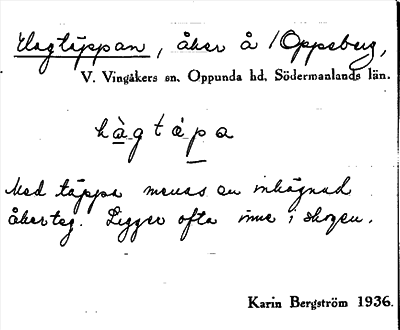 Hagtäppan, åker å /Oppeberg,
V. Vingåkers sn. Oppunda hd. Södermanlands län.
hàgtápa
Med täppa menas en inhägnad
åkerteg. Ligger ofta inne i skogen.
Karin Bergström 1936.